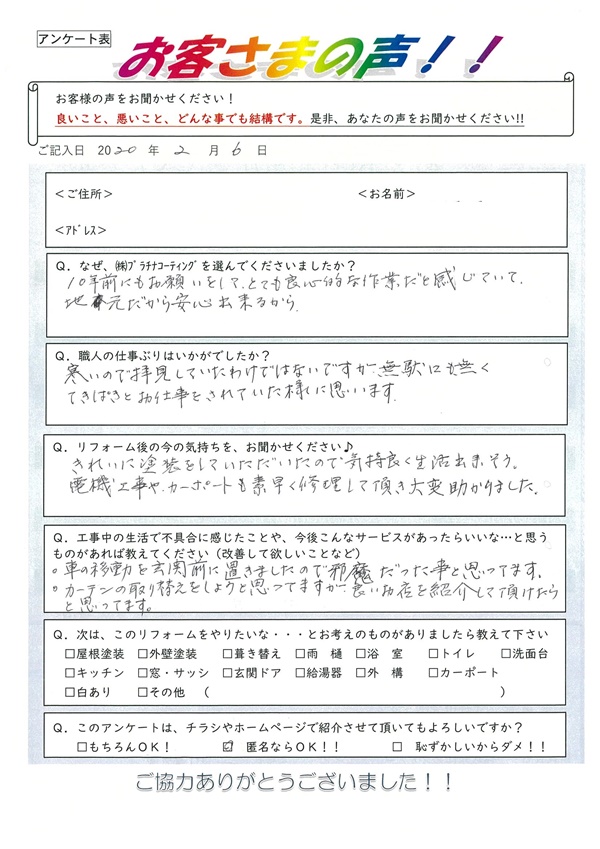 アンケート表
お客さまの声！！
お客様の声をお聞かせください！
良いこと、悪いこと、どんな事でも結構です。是非、あなたの声をお聞かせください!!
ご記入日 2020 年 2 月 6 日
＜ご住所＞ ＜お名前＞
＜ｱﾄﾞﾚｽ＞
Q．なぜ、㈱ﾌﾟﾗﾁﾅｺｰﾃｨﾝｸﾞを選んでくださいましたか？
10年前にもお願いをして、とても良心的な作業だと感じていて、
地元だから安心出来るから、
Q．職人の仕事ぶりはいかがでしたか？
寒いので拝見していたわけではないですが、無駄口も無く
てきぱきとお仕事をされていた様に思います。
Q．リフォーム後の今の気持ちを、お聞かせください♪
きれいに塗装をしていただいたので気持良く生活出来そう。
電機工事や、カーポートも素早く修理して頂き大変助かりました。
Q．工事中の生活で不具合に感じたことや、今後こんなサービスがあったらいいな…と思う
ものがあれば教えてください（改善して欲しいことなど）
・車の移動を玄関前に置きましたので邪魔だった事と思ってます。
・カーテンの取り替えをしようと思ってますが良いお店を紹介して頂けたら
と思ってます。
Q．次は、このリフォームをやりたいな・・・とお考えのものがありましたら教えて下さい
□屋根塗装 □外壁塗装 □葺き替え □雨 樋 □浴 室 □トイレ □洗面台
□キッチン □窓・サッシ □玄関ドア □給湯器 □外 構 □カーポート
□白あり □その他 （ ）
Q．このアンケートは、チラシやホームページで紹介させて頂いてもよろしいですか？
□もちろんＯＫ！ ☑ 匿名ならＯＫ！！ □ 恥ずかしいからダメ！！
ご協力ありがとうございました！！